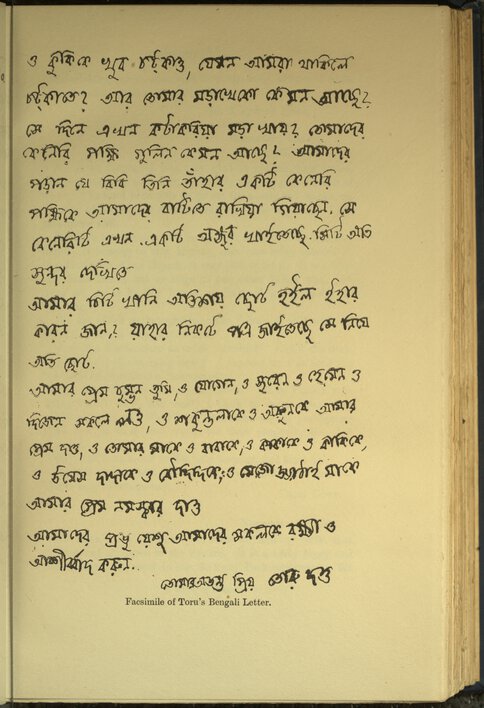 ও কুকিকে খুব চট্কাও, যেমন আমরা থাকিলে
চট্কাতে? আর তোমার মড়াখেকো কেমন আছে?
সে দিনে এখন কটা করিয়া মড়া খায়? তোমাদের
কেনেরি পক্ষি গুলিন কেমন আছে? আমাদের
পড়ান যে বিবি তিনি তাঁহার একটি কেনেরি
পক্ষিকে আমাদের বাটিতে রাখিয়া গিয়াছেন. সে
কেনেরিটি এখন একটি আঙ্গুর খাইতেছে. সিটি অতি
সুন্দর দেখিতে
আমার চিটি খানি অতিশয় ছোট হইল ইহার
কারন জান,? যাহার নিকটে পত্র জাইতেছে সে নিযে
অতি ছোট.
আমার প্রেম চুম্বন তুমি, ও যোগেন, ও সুরেন ও হেমেন ও
দিজেন সকলে লও, ও শাকুন্তলাকে ও অরুনকে আমার
প্রেম দাও, ও তোমার মাকে ও বাবাকে, ও কাকাকে ও কাকিকে,
ও উমেস দাদাকে ও বৌদিদিকে; ও মেজো জ্যাঠাই মাকে
আমার প্রেম নমস্কার দাও
আমাদের প্রভু যেশু আমাদের সকলকে রক্ষা ও
আশীর্ব্বাদ করুন.
তোমার অত্যন্ত প্রিয় তোরু দত্ত
Facsimile of Toru's Bengali Letter.